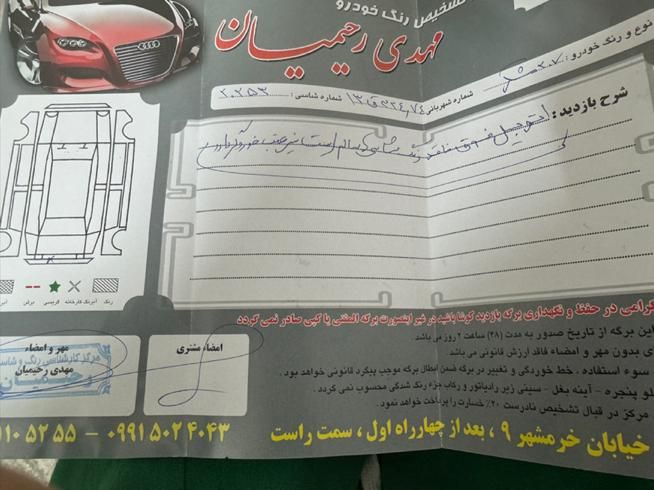 تشخیص رنگ خودرو
مهدی رحیمیان
نوع و رنگ خودرو : ۲۰۷
شماره شهربانی : شماره شاسی : ۲۰۲۵۳
شرح بازدید : اتومبیل فوق فاقد رنگ شاسی سالم است
رنگ آبرنگ کارخانه گریسی برش
گرامی در حفظ و نگهداری برگه بازدید کوشا باشید در غیر اینصورت برگه المثنی یا کپی صادر نمی گردد
این برگه از تاریخ صدور به مدت (۴۸) ساعت ۲ روز می باشد
ای بدون مهر و امضاء فاقد ارزش قانونی می باشد
سوء استفاده ، خط خوردگی و تغییر در برگه ضمن ابطال برگه موجب پیگرد قانونی خواهد بود .
لو پنجره - آینه بغل - سینی زیر رادیاتور و رکاب جزء رنگ شدگی محسوب نمی گردد .
مرکز در قبال تشخیص نادرست ۲۰٪ خسارت را پرداخت خواهد نمود.
امضاء مشتری
مهر و امضاء
مرکز کارشناسی رنگ و شاسی
رحیمیان
مهدی رحیمیان
خیابان خرمشهر ۹ ، بعد از چهارراه اول ، سمت راست
۱۱۰ ۵۲ ۵۵ – ۰۹۹۱ ۵۰۲ ۴۰۴۳